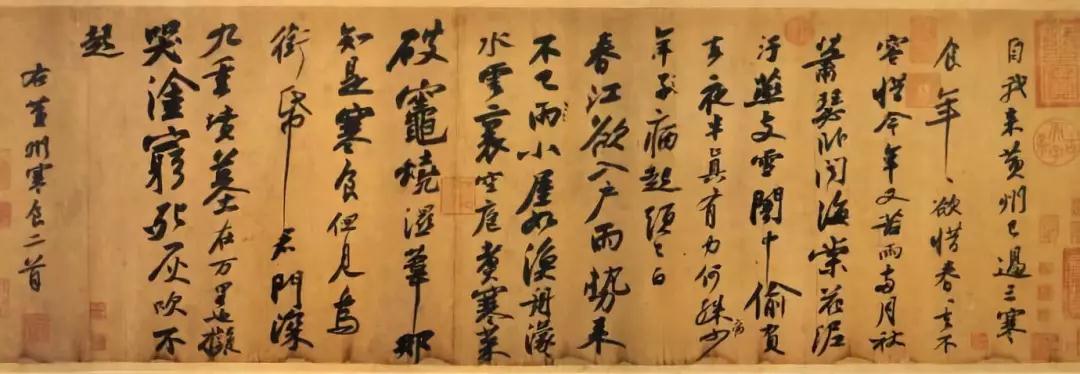 自我来黄州已過三寒
食年〻欲惜春〻去不
容惜今年又苦雨两月秋
蕭瑟卧聞海棠花泥
汙燕支雪闇中偷負
去夜半真有力何殊少
病
年子病起須已白
春江欲入户雨勢来
不已雨小屋如漁舟濛〻
水雲裏空庖煑寒菜
破竈燒濕葦那
知是寒食但見烏
銜帋君門深
九重墳墓在万里也擬
哭塗窮死灰吹不
起
右黄州寒食二首